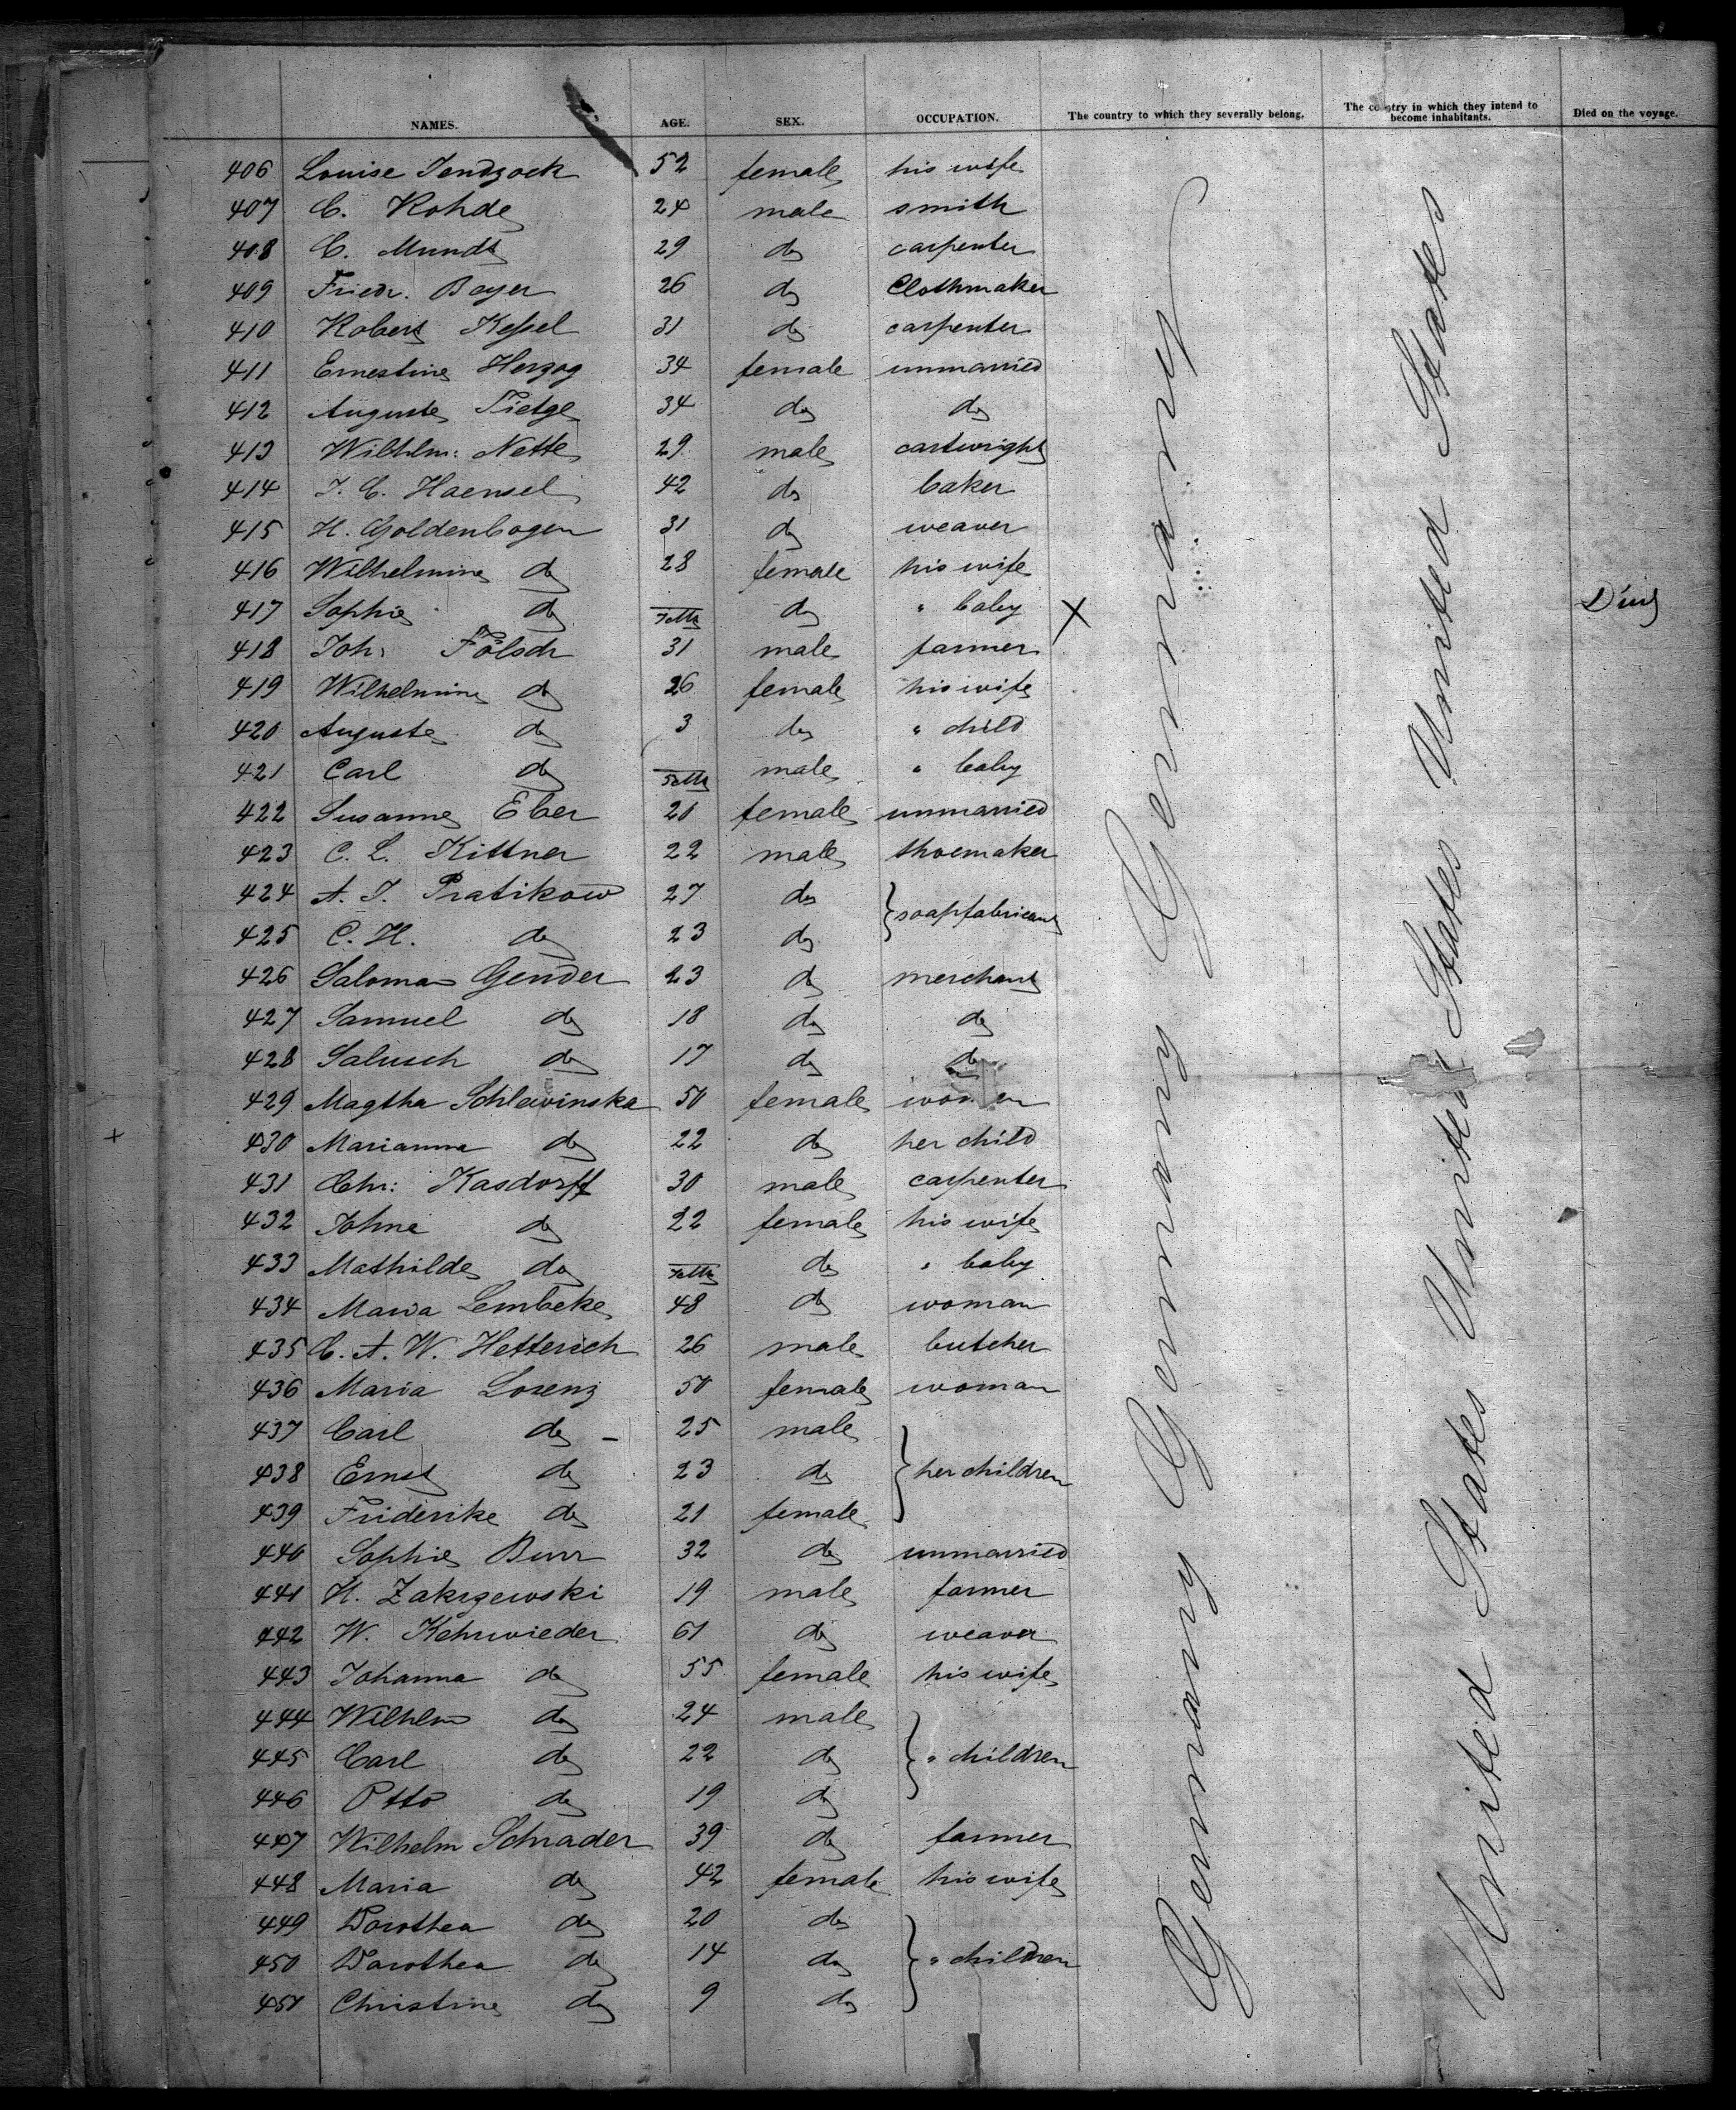 NAMES. AGE. SEX. OCCUPATION. The country to which they severally belong. The country in which they intend to become inhabitants. Died on the voyage.
406 Louise Jendzock 52 female his wife
407 C. Rohde 24 male smith
408 C. Mundt 29 do carpenter
409 Friedr. Beyer 26 do Clothmaker
410 Robert Kessel 31 do carpenter
411 Ernestine Herzog 34 female unmarried
412 Auguste Tietge 34 do do
413 Wilhlm: Nette 29 male cartwright
414 J. C. Haensel 42 do baker
415 H. Goldenbogen 31 do weaver
416 Wilhelmine do 28 female his wife
417 Sophie do do " baby X Died
418 Joh: Fölsch 31 male farmer
419 Wilhelmine do 26 female his wife
420 Auguste do 3 do " child
421 Carl do male " baby
422 Susanne Eber 20 female unmarried
423 C. L. Kittner 22 male shoemaker
424 A. J. Pratikow 27 do } soapfabricant
425 C. H. do 23 do
426 Saloman Gender 23 do merchant
427 Samuel do 18 do do
428 Salusch do 17 do do
429 Magtha Schlewinska 50 female woman
430 Marianna do 22 do her child
431 Chr: Kasdorff 30 male carpenter
432 Johne do 22 female his wife
433 Mathilde do do " baby
434 Maria Lembcke 48 do woman
435 C. A. W. Hetterich 26 male butcher
436 Maria Lorenz 50 female woman
437 Carl do - 25 male
438 Ernst do 23 do } her children
439 Friderike do 21 female
440 Sophie Burr 32 do unmarried
441 H. Zakrzewski 19 male farmer
442 W. Kehrwieder 61 do weaver
443 Johanna do 55 female his wife
444 Wilhlm do 24 male
445 Carl do 22 do } " children
446 Otto do 19 do
447 Wilhelm Schrader 39 do farmer
448 Maria do 42 female his wife
449 Dorothea do 20 do
450 Dorothea do 14 do } " children
451 Christine do 9 do
Germany Germany Germany Germany
United States United States United States United States